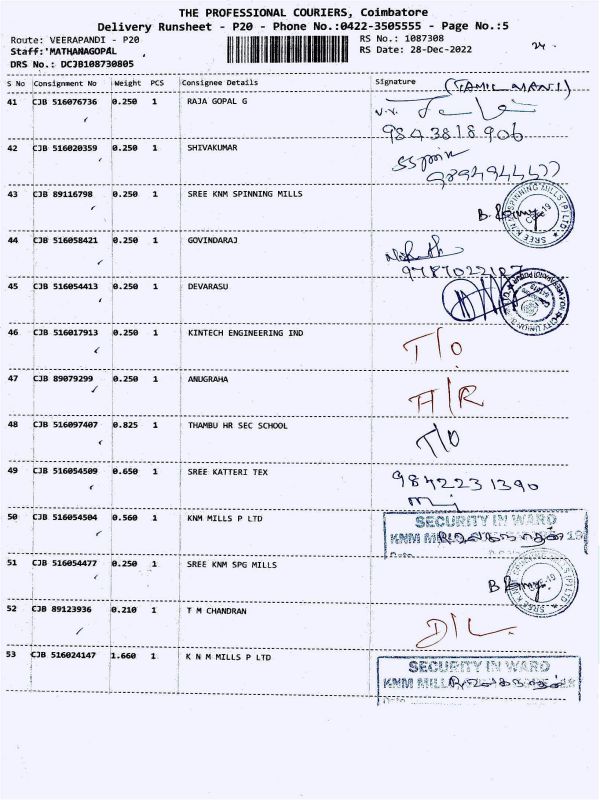 THE PROFESSIONAL COURIERS, Coimbatore
Delivery Runsheet - P20 - Phone No.:0422-3505555 - Page No.:5
Route: VEERAPANDI - P20 RS No.: 1087308
Staff:'MATHANAGOPAL RS Date: 28-Dec-2022
DRS No.: DCJB108730805
S No Consignment No Weight PCS Consignee Details Signature
(TAMIL MANI)
41 CJB 516076736 0.250 1 RAJA GOPAL G
9843818906
42 CJB 516020359 0.250 1 SHIVAKUMAR
43 CJB 89116798 0.250 1 SREE KNM SPINNING MILLS
44 CJB 516058421 0.250 1 GOVINDARAJ
9787022187
45 CJB 516054413 0.250 1 DEVARASU
46 CJB 516017913 0.250 1 KINTECH ENGINEERING IND T/O
47 CJB 89079299 0.250 1 ANUGRAHA A/R
48 CJB 516097407 0.825 1 THAMBU HR SEC SCHOOL T/O
49 CJB 516054509 0.650 1 SREE KATTERI TEX 9842231390
50 CJB 516054504 0.560 1 KNM MILLS P LTD SECURITY IN WARD
51 CJB 516054477 0.250 1 SREE KNM SPG MILLS
52 CJB 89123936 0.210 1 T M CHANDRAN D/L
53 CJB 516024147 1.660 1 K N M MILLS P LTD SECURITY IN WARD